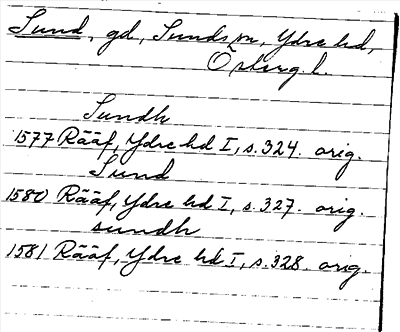 Sund, gd, Sunds sn, Ydre hd,
Östergötl. l.
Sundh
1577 Rääf, Ydre hd I, s. 324. orig.
Sund
1580 Rääf, Ydre hd I, s. 327. orig.
sundh
1581 Rääf, Ydre hd I, s. 328. orig.